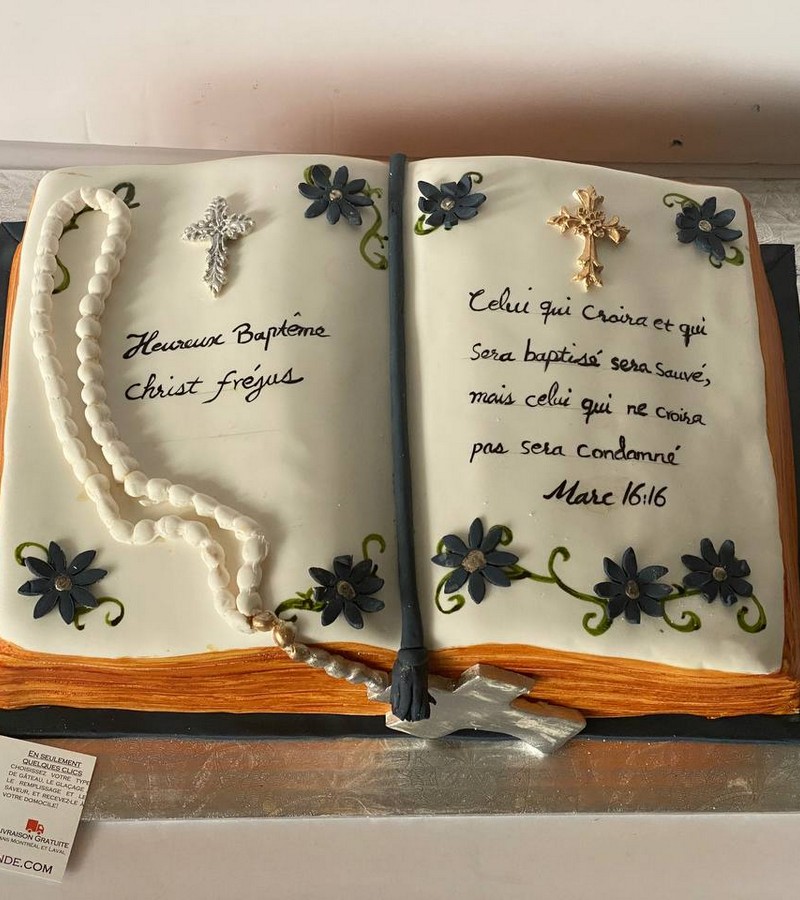 Heureux Baptême
Christ fréjus
Celui qui Croira et qui
Sera baptisé sera Sauvé,
mais celui qui ne croira
pas sera Condamné
Marc 16:16
EN SEULEMENT
QUELQUES CLICS
CHOISISSEZ VOTRE TYPE
DE GÂTEAU, LE GLAÇAGE
LE REMPLISSAGE ET LE
SAVEUR, ET RECEVEZ-LE À
VOTRE DOMICILE!
LIVRAISON GRATUITE
MONTRÉAL ET LAVAL
NDE.COM